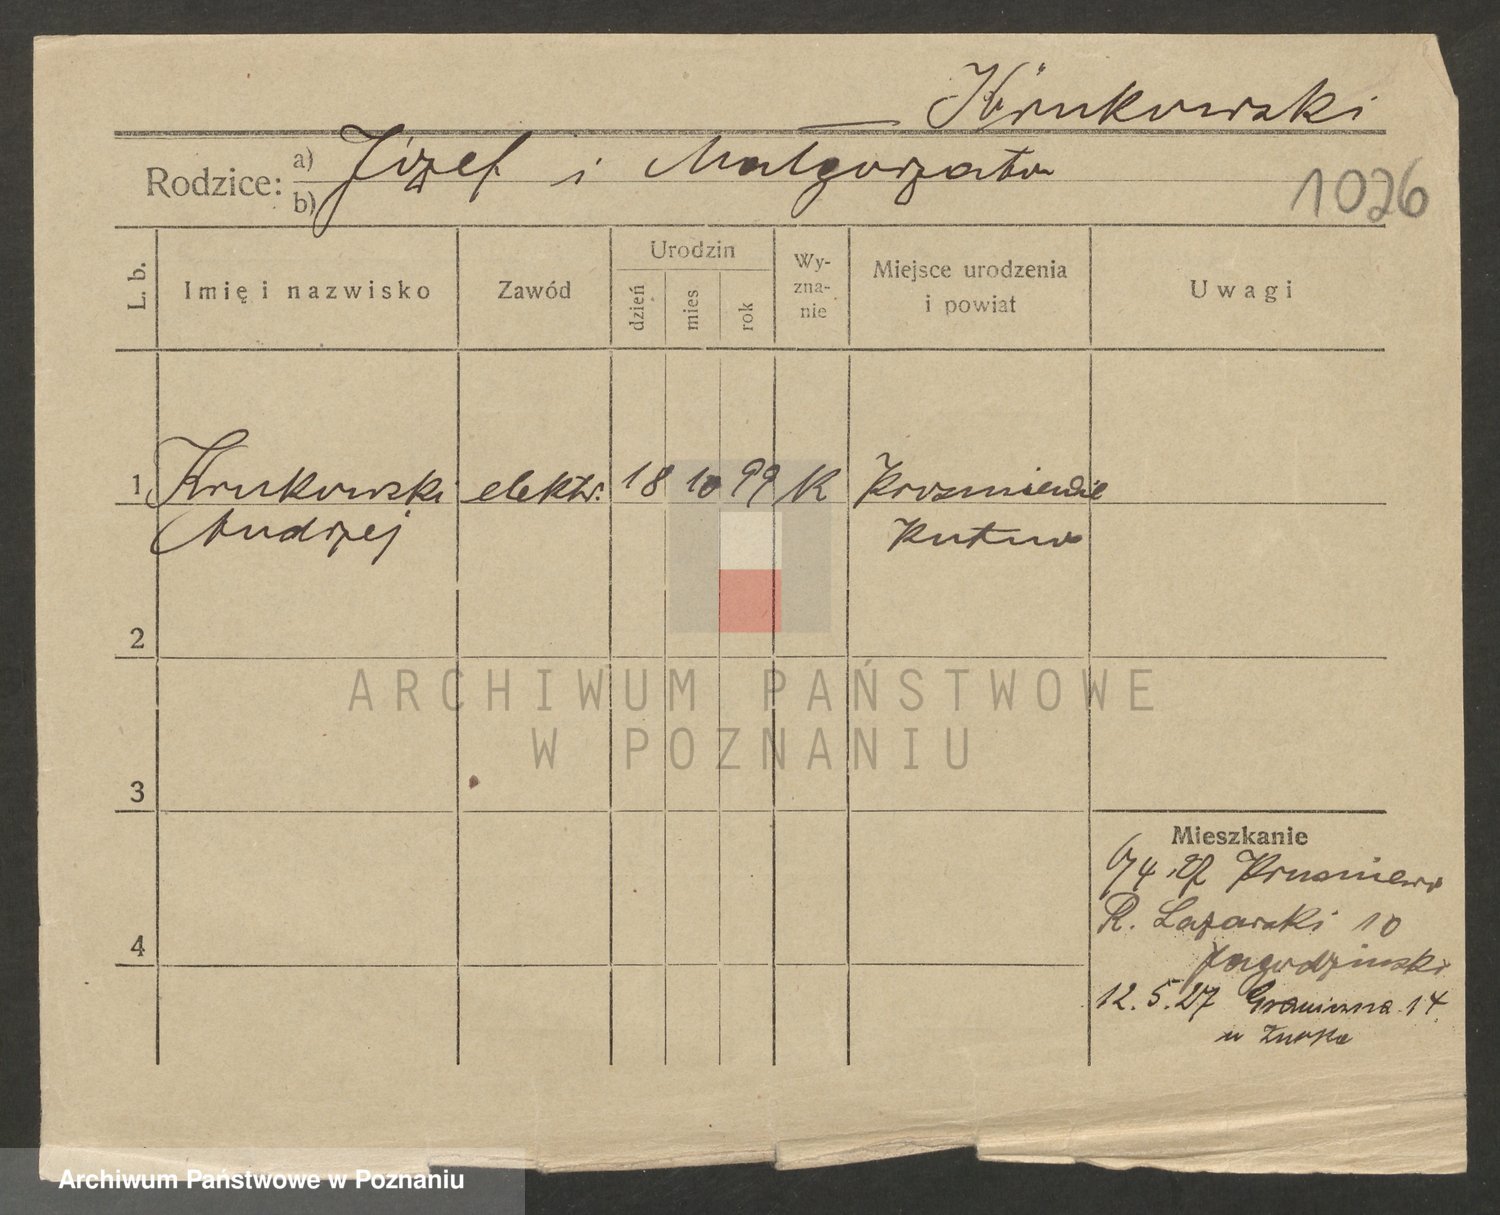 Krukowski
Rodzice: a) Józef i Małgorzata
b)
1026
L. b.
Imię i nazwisko
Zawód
Urodzin
dzień
mies
rok
Wy-
zna-
nie
Miejsce urodzenia
i powiat
Uwagi
1 Krukowski elektr. 18 10 99 K Krośniewice
Andrzej Kutno
2
3
4
Mieszkanie
6/4 27
R. Łazarski 10
Jagodziński
12.5.27 Graniczna 14
u Żurka
ARCHIWUM PAŃSTWOWE
W POZNANIU
Archiwum Państwowe w Poznaniu